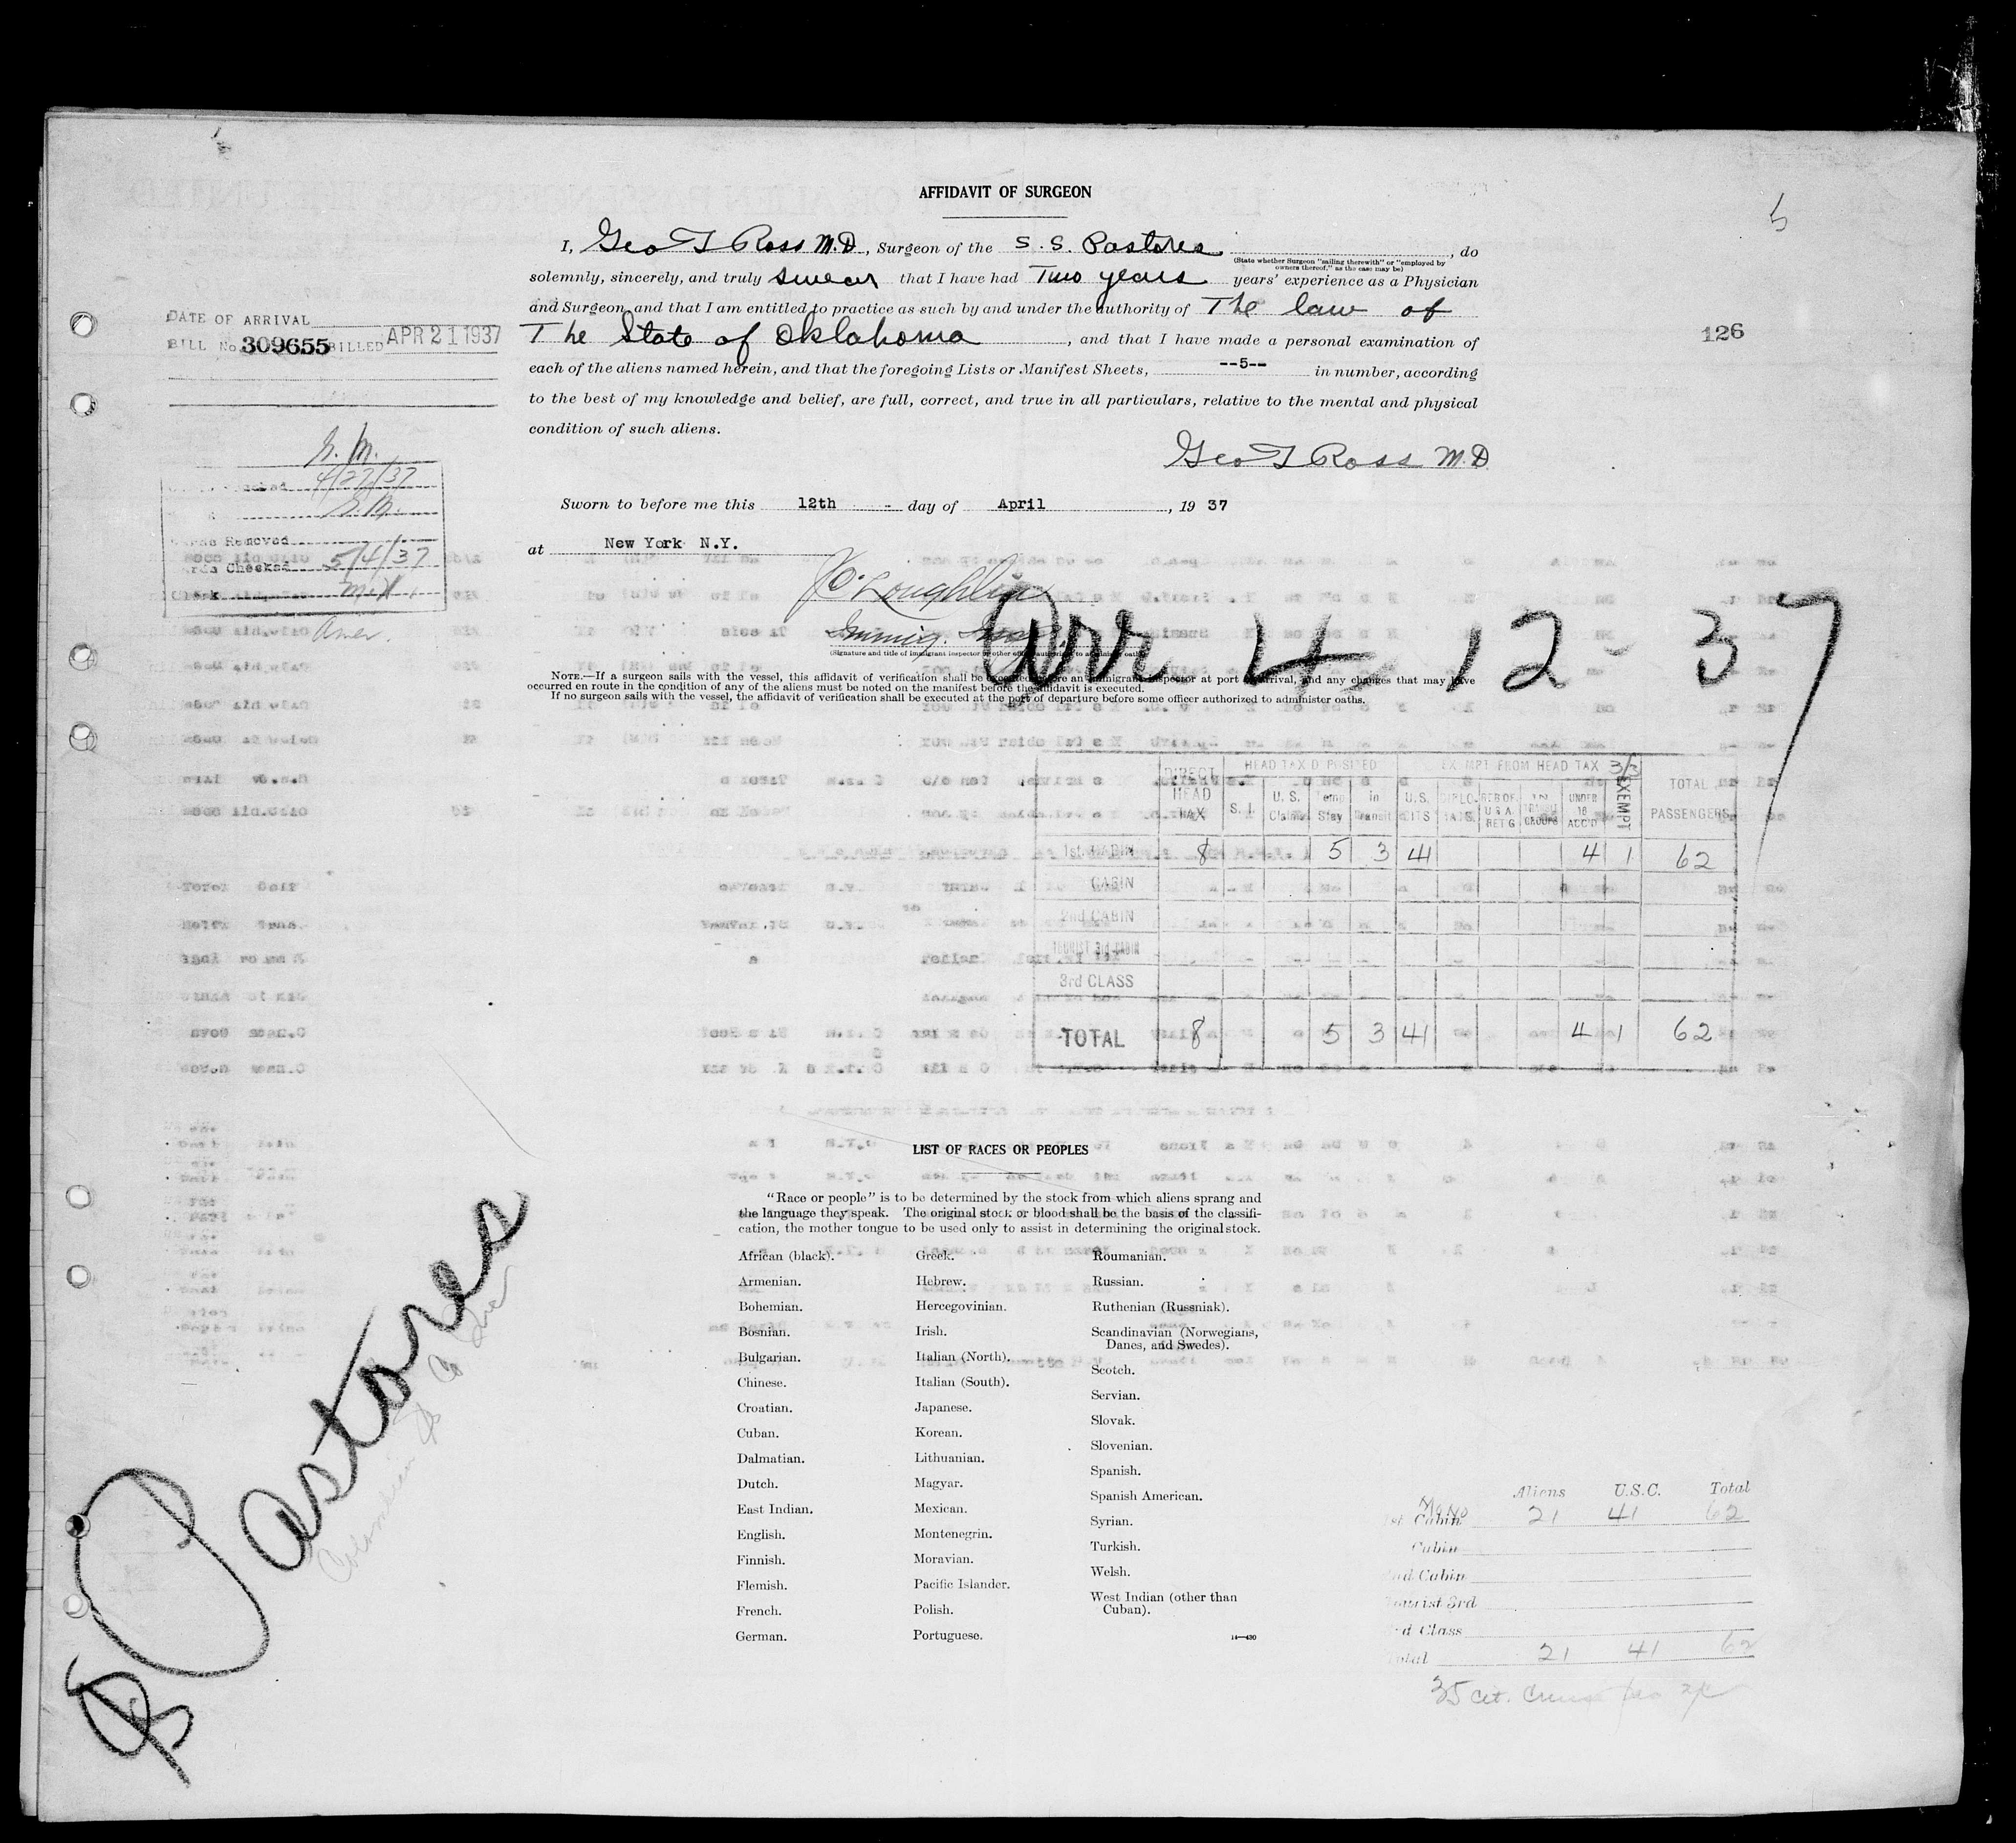 5
AFFIDAVIT OF SURGEON
I, Geo T Ross M.D., Surgeon of the S.S. Pastores, do
(State whether Surgeon "sailing therewith" or "employed by
owners thereof," as the case may be)
solemnly, sincerely, and truly swear that I have had Two years years' experience as a Physician
and Surgeon and that I am entitled to practice as such by and under the authority of The law of
The State of Oklahoma, and that I have made a personal examination of
each of the aliens named herein, and that the foregoing Lists or Manifest Sheets, --5-- in number, according
to the best of my knowledge and belief, are full, correct, and true in all particulars, relative to the mental and physical
condition of such aliens.
Geo T Ross M.D
Sworn to before me this 12th day of April, 1937
at New York N.Y.
(Signature and title of immigrant inspector or other officer authorized to administer oaths)
NOTE.—If a surgeon sails with the vessel, this affidavit of verification shall be executed before an immigrant inspector at port of arrival, and any changes that may have
occurred en route in the condition of any of the aliens must be noted on the manifest before the affidavit is executed.
If no surgeon sails with the vessel, the affidavit of verification shall be executed at the port of departure before some officer authorized to administer oaths.
DATE OF ARRIVAL
BILL No. 309655 BILLED APR 21 1937
126
4/27/37
Cards Removed
Cards Checked 5/4/37
Clerk
Arr 4-12-37
DIRECT HEAD TAX HEAD TAX DEPOSITED EXEMPT FROM HEAD TAX 3/3 TOTAL PASSENGERS
S. I. U.S. Claims Temp Stay In Transit U.S. CITS DIPLOMATS RES OF U.S.A. RET'G IN TRANSIT GROUPS UNDER 16 ACC'D EXEMPT
1st. CABIN 8 5 3 41 4 1 62
CABIN
2nd CABIN
TOURIST 3rd CABIN
3rd CLASS
TOTAL 8 5 3 41 4 1 62
LIST OF RACES OR PEOPLES
"Race or people" is to be determined by the stock from which aliens sprang and
the language they speak. The original stock or blood shall be the basis of the classifi-
cation, the mother tongue to be used only to assist in determining the original stock.
African (black).
Armenian.
Bohemian.
Bosnian.
Bulgarian.
Chinese.
Croatian.
Cuban.
Dalmatian.
Dutch.
East Indian.
English.
Finnish.
Flemish.
French.
German.
Greek.
Hebrew.
Hercegovinian.
Irish.
Italian (North).
Italian (South).
Japanese.
Korean.
Lithuanian.
Magyar.
Mexican.
Montenegrin.
Moravian.
Pacific Islander.
Polish.
Portuguese.
Roumanian.
Russian.
Ruthenian (Russniak).
Scandinavian (Norwegians,
Danes, and Swedes).
Scotch.
Servian.
Slovak.
Slovenian.
Spanish.
Spanish American.
Syrian.
Turkish.
Welsh.
West Indian (other than
Cuban).
14—430
Pastores
Aliens U.S.C. Total
1st Cabin 21 41 62
Cabin
2nd Cabin
Tourist 3rd
3rd Class
Total 21 41 62
35 cit.